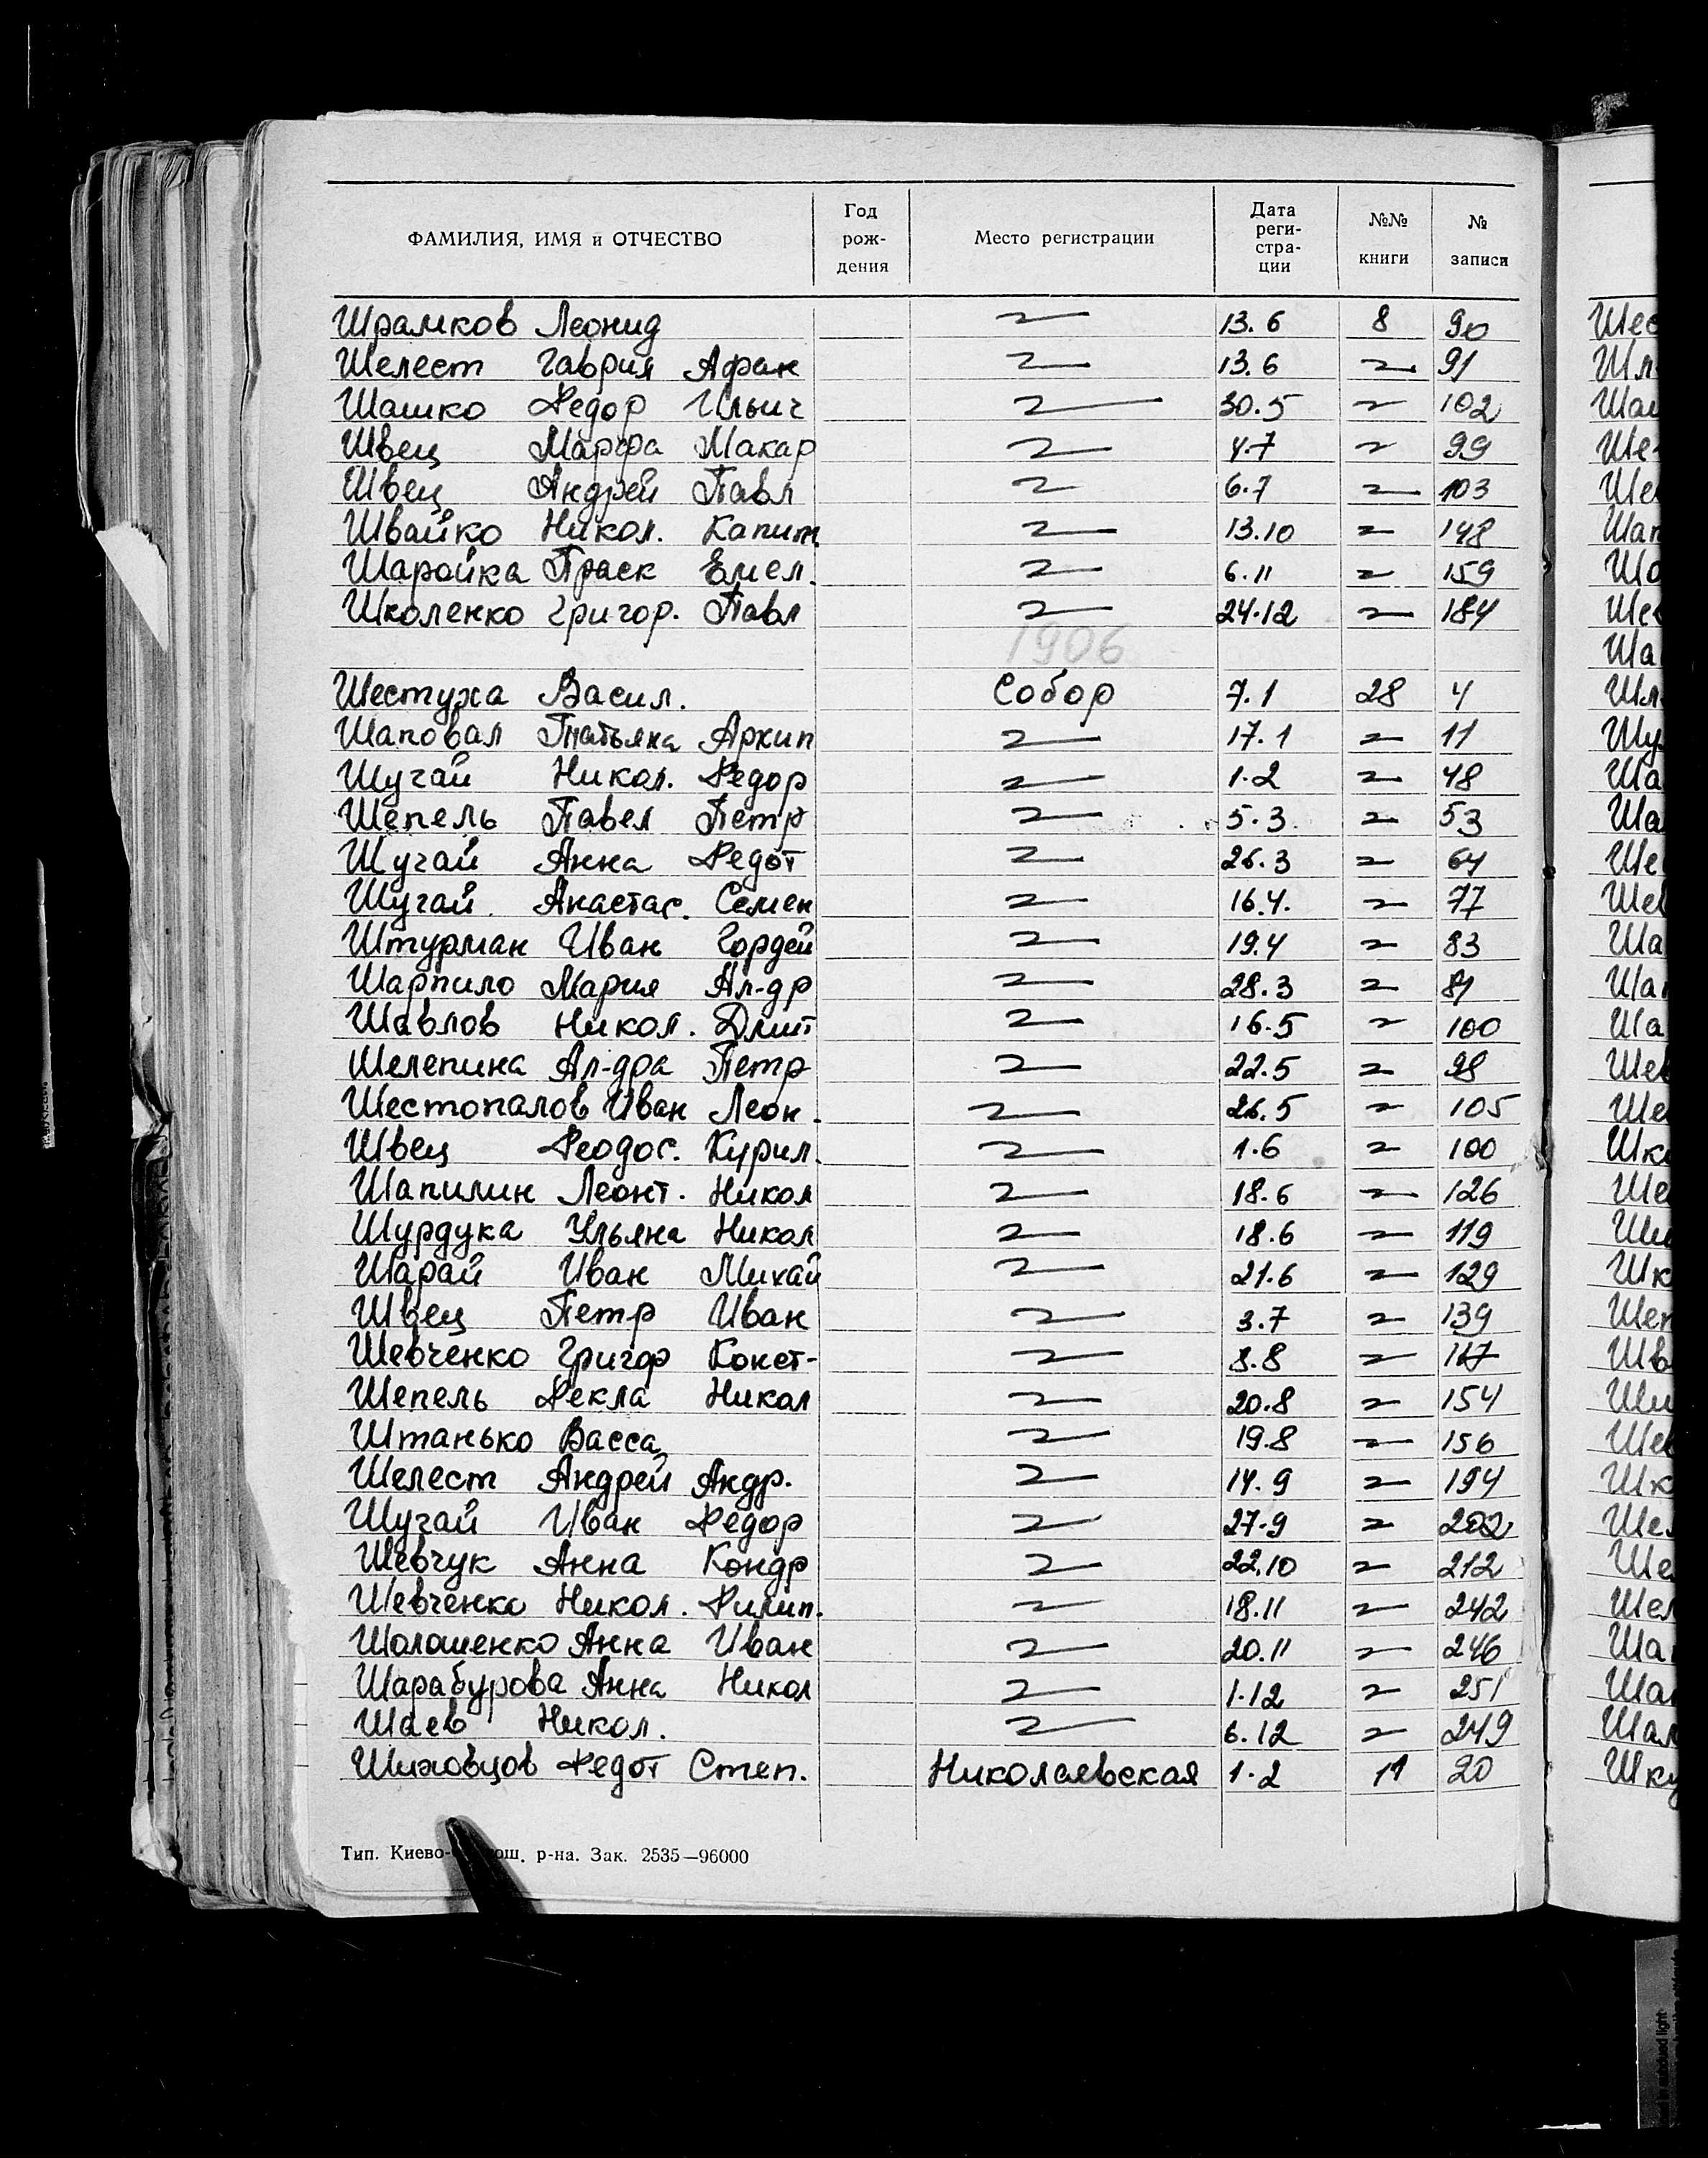 ФАМИЛИЯ, ИМЯ и ОТЧЕСТВО Год рождения Место регистрации Дата регистрации №№ книги № записи
Шрамков Леонид 〃 13.6 8 90
Шелест Гаврил Афан 〃 13.6 〃 91
Шашко Федор Ильич 〃 30.5 〃 102
Швец Марфа Макар 〃 4.7 〃 99
Швец Андрей Павл 〃 6.7 〃 103
Швайко Никол. Капит 〃 13.10 〃 148
Шаройка Праск Емел. 〃 6.11 〃 159
Школенко Григор. Павл 〃 24.12 〃 184
1906
Шестуха Васил. Собор 7.1 28 4
Шаповал Татьяна Архип 〃 17.1 〃 11
Шугай Никол. Федор 〃 1.2 〃 48
Шепель Павел Петр 〃 5.3 〃 53
Шугай Анна Федот 〃 26.3 〃 64
Шугай Анастас. Семен 〃 16.4. 〃 77
Штурман Иван Гордей 〃 19.4 〃 83
Шарпило Мария Ал-др 〃 28.3 〃 81
Шавлов Никол. Дмит 〃 16.5 〃 100
Шелепина Ал-дра Петр 〃 22.5 〃 98
Шестопалов Иван Леон. 〃 26.5 〃 105
Швец Феодос. Курил. 〃 1.6 〃 100
Шапилин Леонт. Никол 〃 18.6 〃 126
Шурдука Ульяна Никол 〃 18.6 〃 119
Шарай Иван Михай 〃 21.6 〃 129
Швец Петр Иван 〃 3.7 〃 139
Шевченко Григор Конст- 〃 8.8 〃
Шепель Фекла Никол 〃 20.8 〃 154
Штанько Васса 〃 19.8 〃 156
Шелест Андрей Андр. 〃 14.9 〃 194
Шугай Иван Федор 〃 27.9 〃 202
Шевчук Анна Кондр 〃 22.10 〃 212
Шевченко Никол. Филип. 〃 18.11 〃 242
Шолошенко Анна Иван 〃 20.11 〃 246
Шарабурова Анна Никол 〃 1.12 〃 251
Шаев Никол. 〃 6.12 〃 249
Шиховцов Федот Степ. Николаевская 1.2 11 20
Тип. Киево- ош. р-на. Зак. 2535—96000